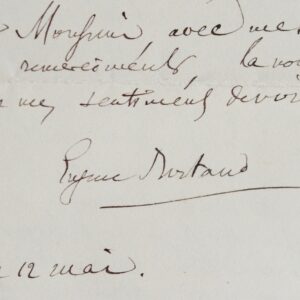 Monsieur avec mes
remerciements la nou
mes sentiments dévou
Eugène Bertrand
12 mai.